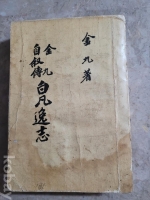 金九著
金九
自敘傳
白凡逸志
kobay